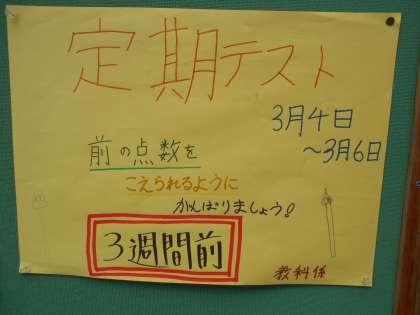 定期テスト
3月4日
～3月6日
前の点数を
こえられるように
がんばりましょう!
3週間前
教科係